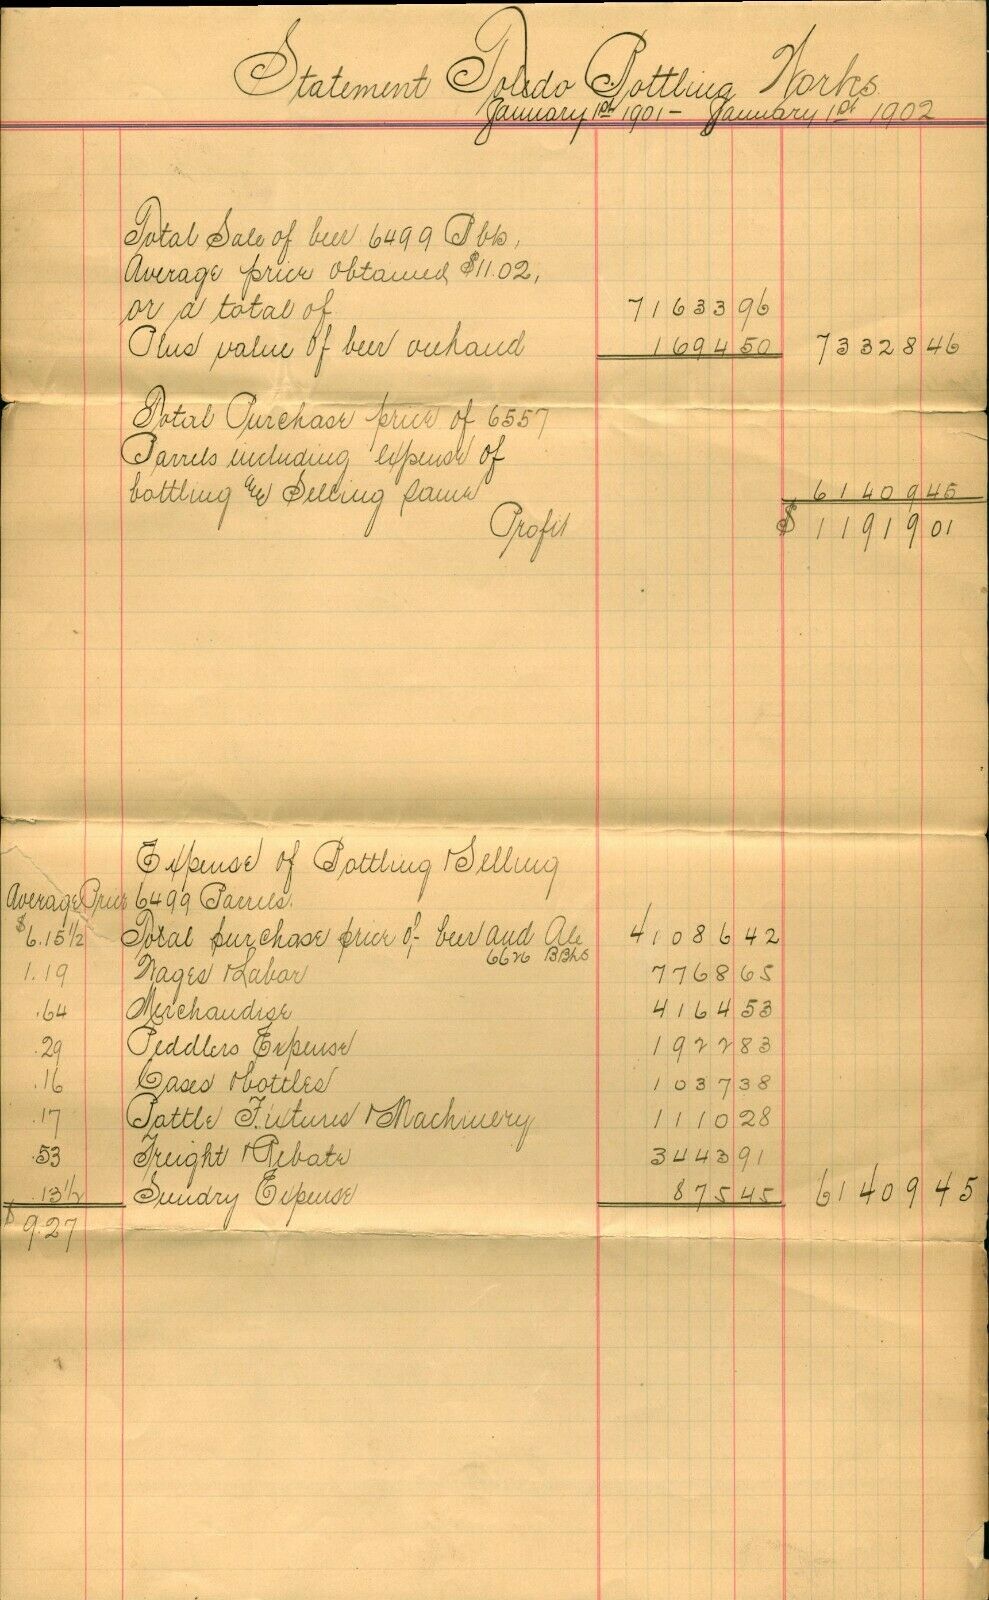 Statement Toledo Bottling Works.
January 1st 1901 – January 1st 1902
Total Sale of beer 6499 Bbls,
Average price obtained $11.02,
or a total of 71633 96
Plus value of beer onhand 1694 50 73328 46
Total Purchase price of 6557
Barrels including expense of
bottling & Selling same 61409 45
Profit $ 11919 01
Expense of Bottling & Selling
Average Price 6499 Barrels.
$6.15 1/2 Total purchase price of beer and Ale 41086 42
6626 BBls
1.19 Wages & Labor 7768 65
.64 Merchandise 4164 53
.29 Peddlers Expense 1922 83
.16 Cases & bottles 1037 38
.17 Bottle Fixtures & Machinery 1110 28
.53 Freight & Rebate 3443 91
.13 1/2 Sundry Expense 875 45 61409 45
$ 9.27